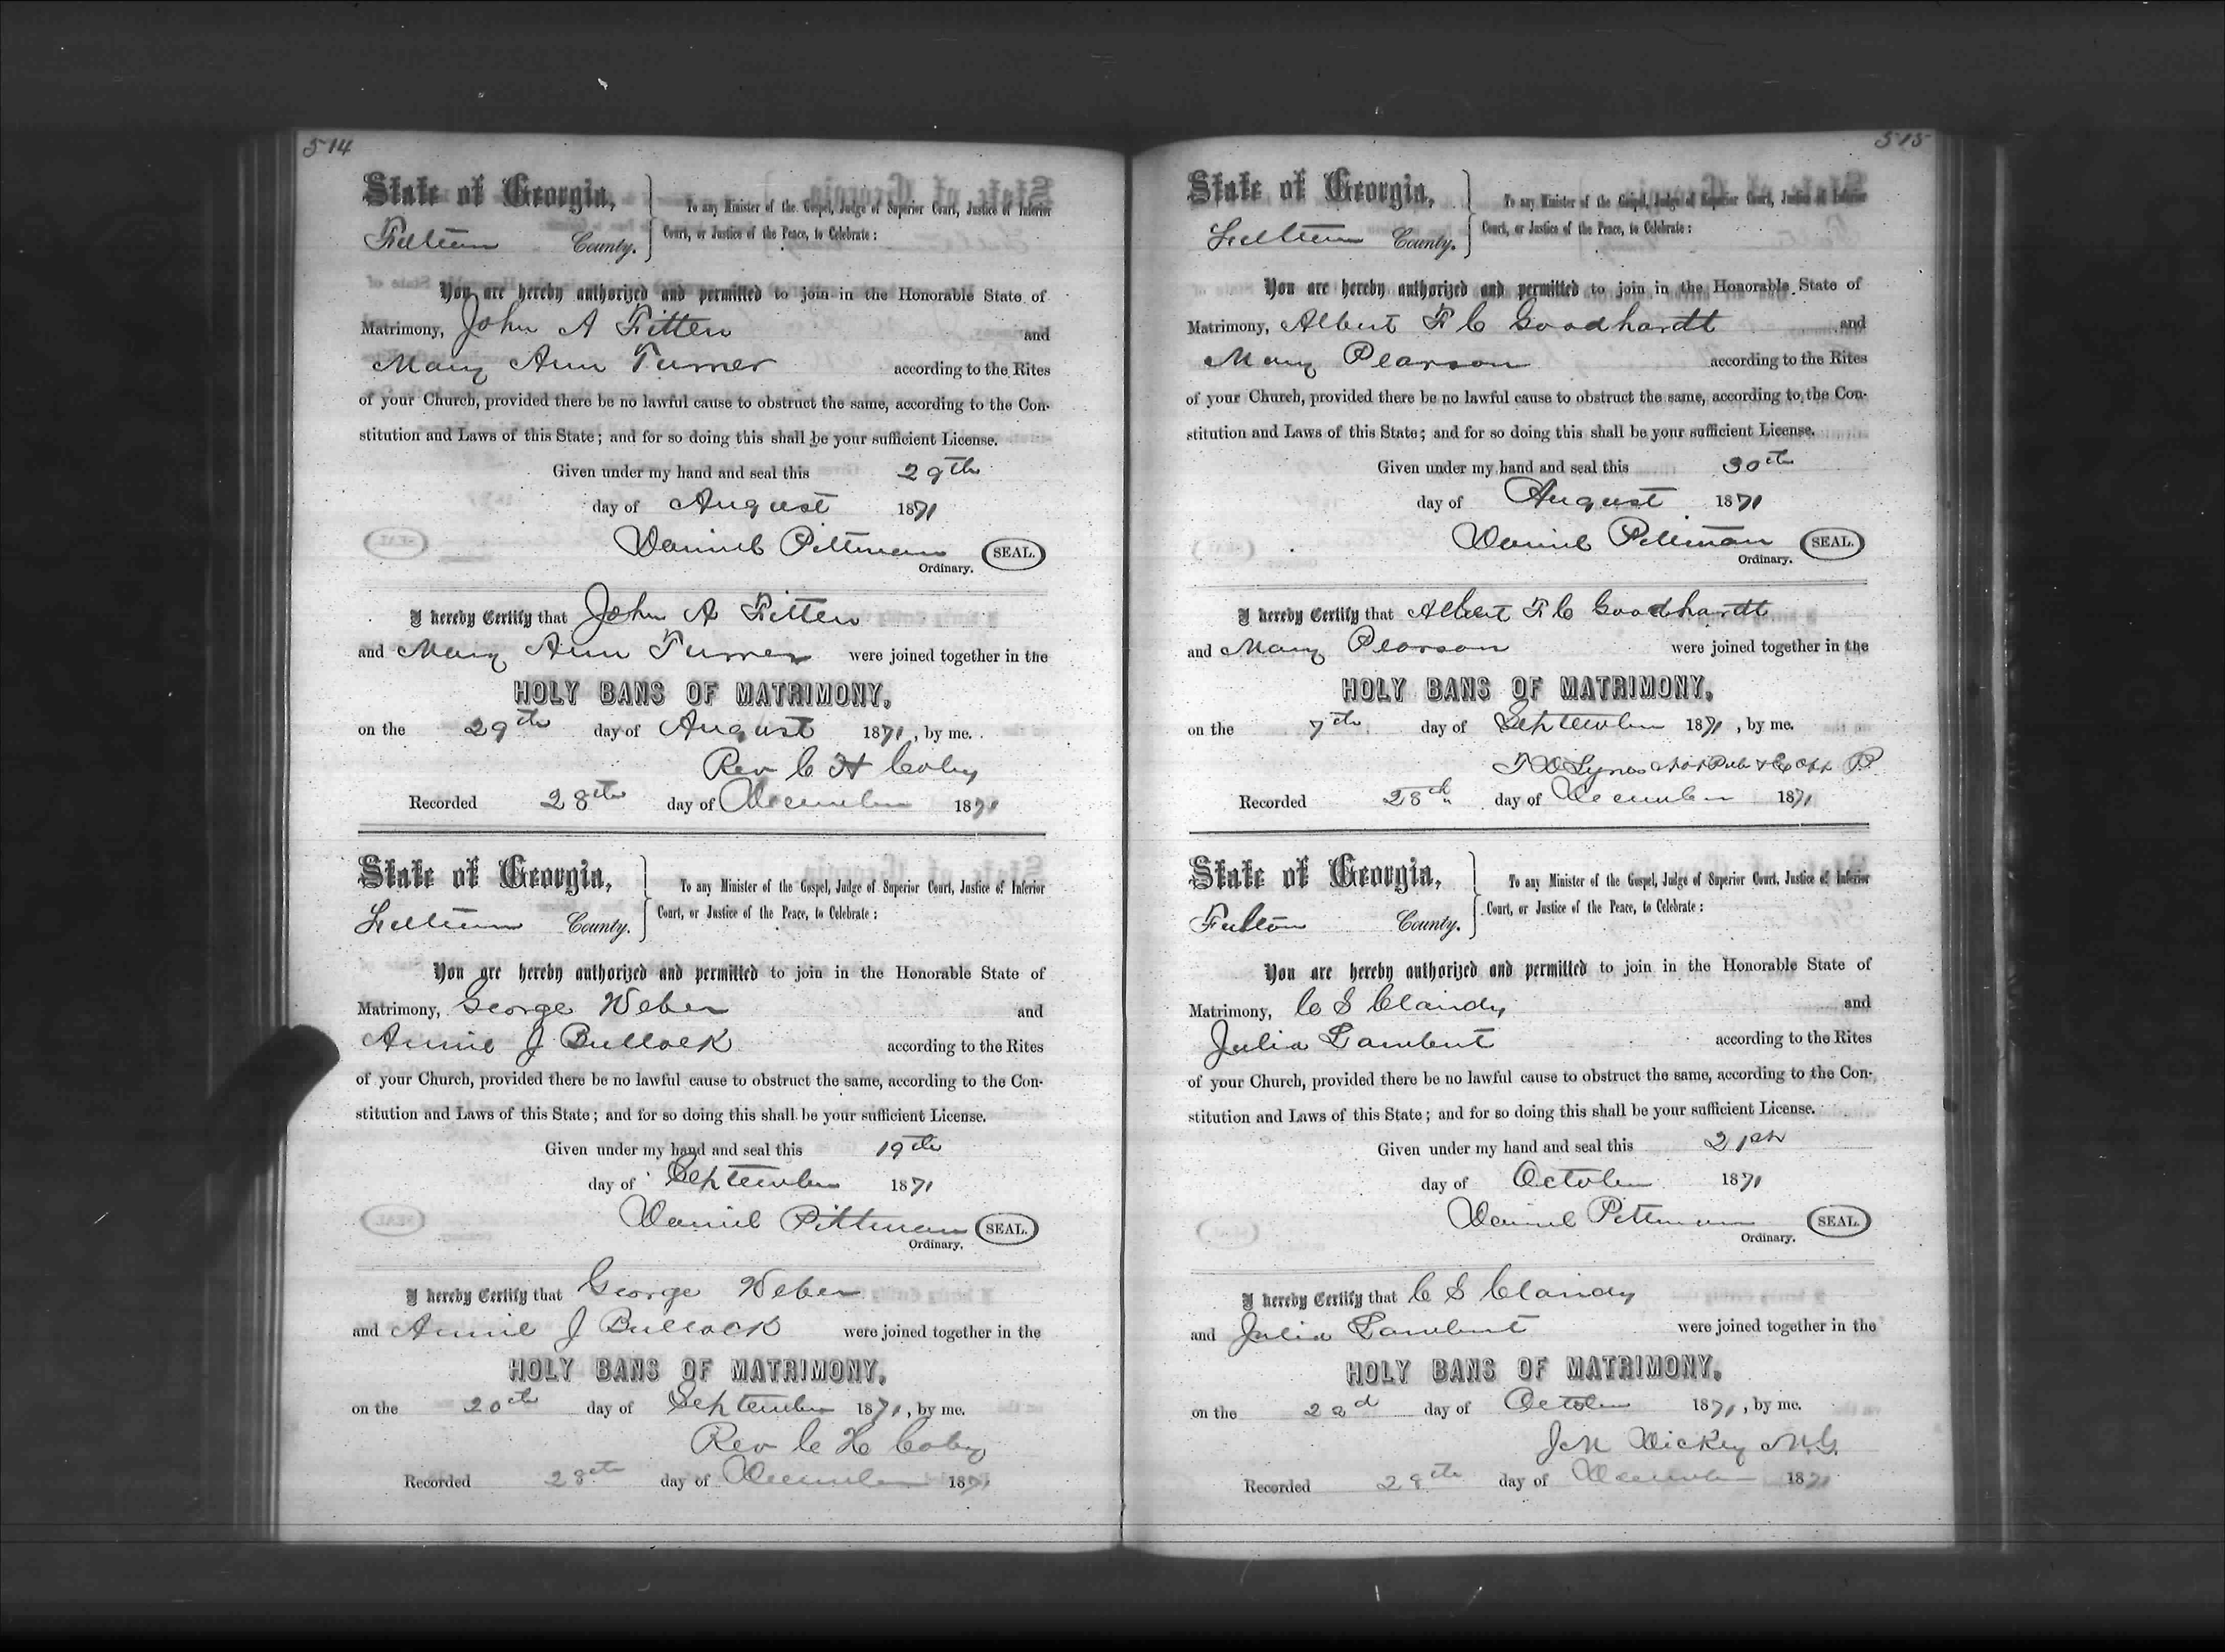 514
State of Georgia,
Fulton County.
To any Minister of the Gospel, Judge of Superior Court, Justice of Inferior
Court, or Justice of the Peace, to Celebrate:
You are hereby authorized and permitted to join in the Honorable State of
Matrimony, John A Fitten and
Mary Ann Turner according to the Rites
of your Church, provided there be no lawful cause to obstruct the same, according to the Con-
stitution and Laws of this State; and for so doing this shall be your sufficient License.
Given under my hand and seal this 29th
day of August 1871
Daniel Pittman SEAL.
Ordinary.
I hereby Certify that John A Fitten
and Mary Ann Turner were joined together in the
HOLY BANS OF MATRIMONY,
on the 29th day of August 1871, by me.
Rev C H Coley
Recorded 28th day of December 1871
State of Georgia,
Fulton County.
To any Minister of the Gospel, Judge of Superior Court, Justice of Inferior
Court, or Justice of the Peace, to Celebrate:
You are hereby authorized and permitted to join in the Honorable State of
Matrimony, George Weber and
Annie J Bullock according to the Rites
of your Church, provided there be no lawful cause to obstruct the same, according to the Con-
stitution and Laws of this State; and for so doing this shall be your sufficient License.
Given under my hand and seal this 19th
day of September 1871
Daniel Pittman SEAL.
Ordinary.
I hereby Certify that George Weber
and Annie J Bullock were joined together in the
HOLY BANS OF MATRIMONY,
on the 20th day of September 1871, by me.
Rev C H Coley
Recorded 28th day of December 1871
515
State of Georgia,
Fulton County.
To any Minister of the Gospel, Judge of Superior Court, Justice of Inferior
Court, or Justice of the Peace, to Celebrate:
You are hereby authorized and permitted to join in the Honorable State of
Matrimony, Albert F C Goodhardt and
Mary Pearson according to the Rites
of your Church, provided there be no lawful cause to obstruct the same, according to the Con-
stitution and Laws of this State; and for so doing this shall be your sufficient License.
Given under my hand and seal this 30th
day of August 1871
Daniel Pittman SEAL.
Ordinary.
I hereby Certify that Albert F C Goodhardt
and Mary Pearson were joined together in the
HOLY BANS OF MATRIMONY,
on the 7th day of September 1871, by me.
Not Pub & Ex Off
Recorded 28th day of December 1871
State of Georgia,
Fulton County.
To any Minister of the Gospel, Judge of Superior Court, Justice of Inferior
Court, or Justice of the Peace, to Celebrate:
You are hereby authorized and permitted to join in the Honorable State of
Matrimony, C S Clandy and
Julia Lambert according to the Rites
of your Church, provided there be no lawful cause to obstruct the same, according to the Con-
stitution and Laws of this State; and for so doing this shall be your sufficient License.
Given under my hand and seal this 21st
day of October 1871
Daniel Pittman SEAL.
Ordinary.
I hereby Certify that C S Clandy
and Julia Lambert were joined together in the
HOLY BANS OF MATRIMONY,
on the 22d day of October 1871, by me.
J M Dickey M.G.
Recorded 28th day of December 1871